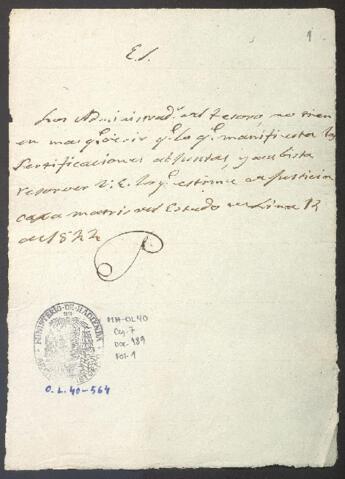 1
E. S.
Los Administrad.s del Tesoro, no tien
en mas q.e decir q.e lo q.e manifiestan las
Sertificaciones adjuntas, y a su bista
resolver V. E. lo q.e estime en Justicia
caxa matris del Estado de Lima 12
de 1822
MINISTERIO DE HACIENDA
MH-OL40
Caj. 7
Doc. 189
Fol. 1
O. L. 40-564